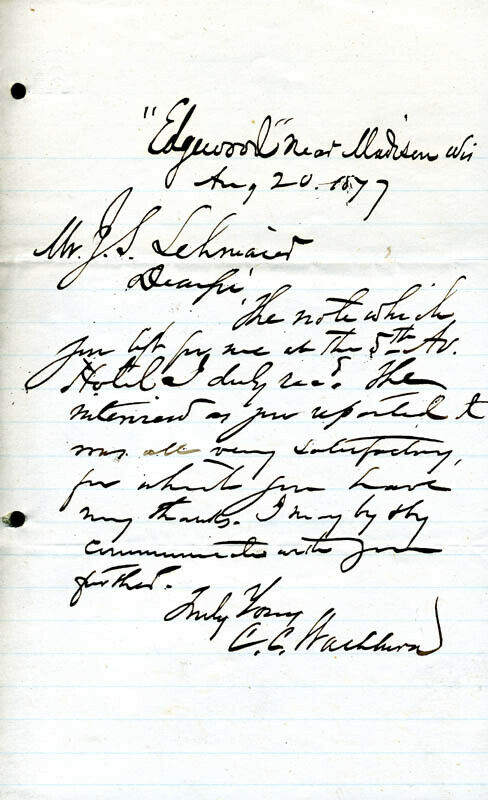 "Edgewood" near Madison Wis
Aug 20. 1877
Mr. J. S. Lehmaier
Dear Sir
The note which
you left for me at the 5th Av.
Hotel I duly recd. The
interview as you reported it
was all very satisfactory,
for which you have
my thanks. I may by & by
communicate with you
further.
Truly Yours
C. C. Washburn